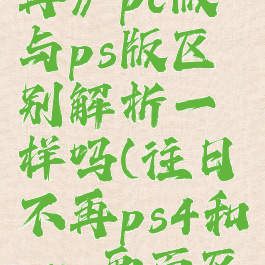 再》pc版
与ps版区
别解析一
样吗(往日
不再ps4和